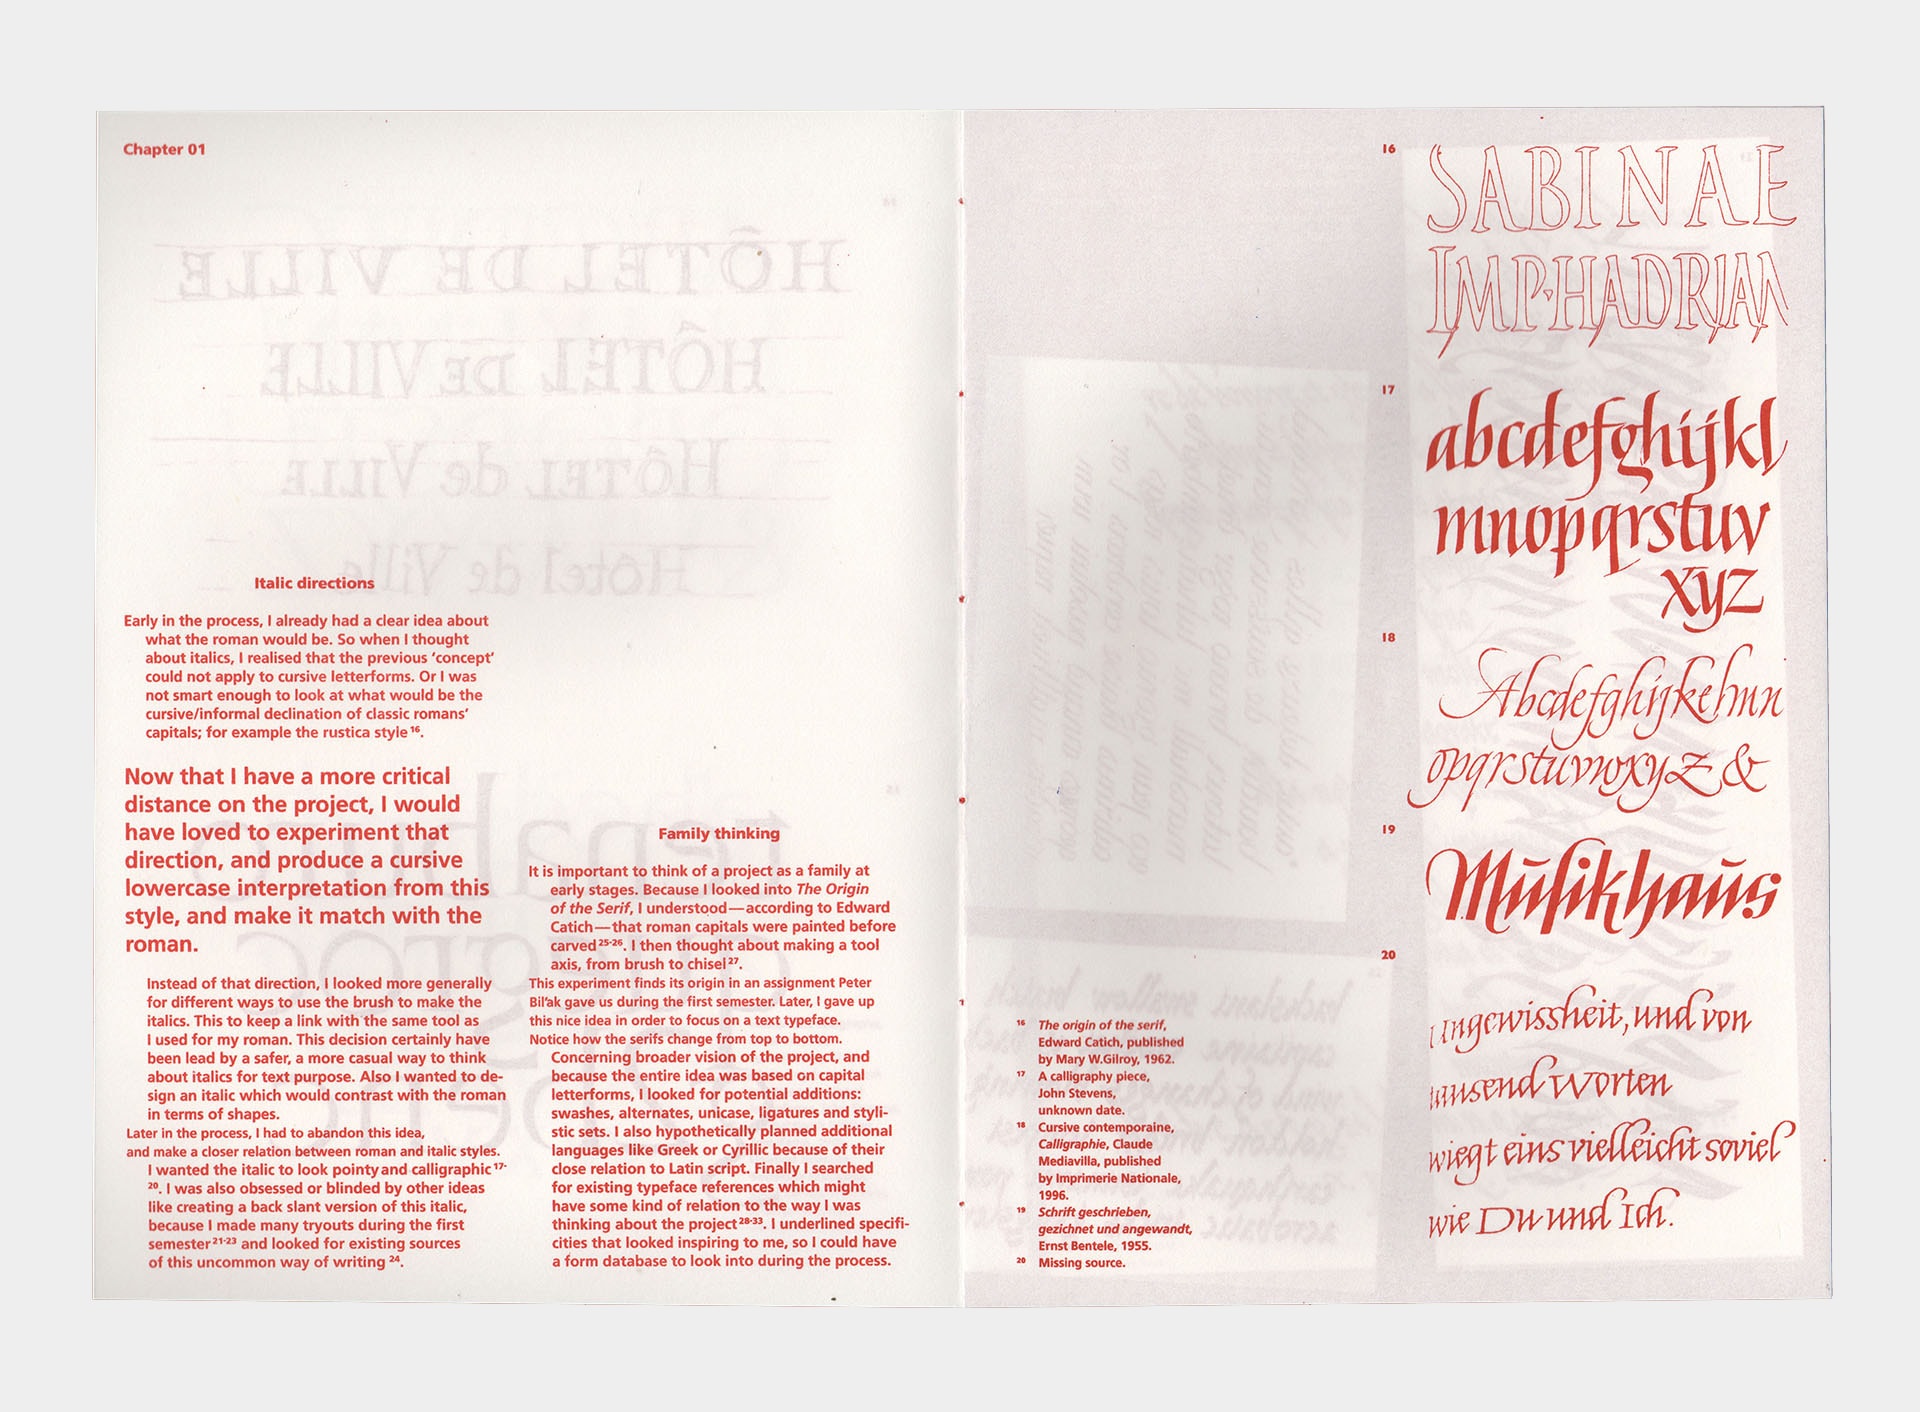 Chapter 01
Italic directions
Early in the process, I already had a clear idea about
what the roman would be. So when I thought
about italics, I realised that the previous ‘concept’
could not apply to cursive letterforms. Or I was
not smart enough to look at what would be the
cursive/informal declination of classic romans’
capitals; for example the rustica style 16.
Now that I have a more critical
distance on the project, I would
have loved to experiment that
direction, and produce a cursive
lowercase interpretation from this
style, and make it match with the
roman.
Instead of that direction, I looked more generally
for different ways to use the brush to make the
italics. This to keep a link with the same tool as
I used for my roman. This decision certainly have
been lead by a safer, a more casual way to think
about italics for text purpose. Also I wanted to de-
sign an italic which would contrast with the roman
in terms of shapes.
Later in the process, I had to abandon this idea,
and make a closer relation between roman and italic styles.
I wanted the italic to look pointy and calligraphic 17-
20. I was also obsessed or blinded by other ideas
like creating a back slant version of this italic,
because I made many tryouts during the first
semester 21-23 and looked for existing sources
of this uncommon way of writing 24.
Family thinking
It is important to think of a project as a family at
early stages. Because I looked into The Origin
of the Serif, I understood—according to Edward
Catich—that roman capitals were painted before
carved 25-26. I then thought about making a tool
axis, from brush to chisel 27.
This experiment finds its origin in an assignment Peter
Bil’ak gave us during the first semester. Later, I gave up
this nice idea in order to focus on a text typeface.
Notice how the serifs change from top to bottom.
Concerning broader vision of the project, and
because the entire idea was based on capital
letterforms, I looked for potential additions:
swashes, alternates, unicase, ligatures and styli-
stic sets. I also hypothetically planned additional
languages like Greek or Cyrillic because of their
close relation to Latin script. Finally I searched
for existing typeface references which might
have some kind of relation to the way I was
thinking about the project 28-33. I underlined specifi-
cities that looked inspiring to me, so I could have
a form database to look into during the process.
16 The origin of the serif,
Edward Catich, published
by Mary W.Gilroy, 1962.
17 A calligraphy piece,
John Stevens,
unknown date.
18 Cursive contemporaine,
Calligraphie, Claude
Mediavilla, published
by Imprimerie Nationale,
1996.
19 Schrift geschrieben,
gezeichnet und angewandt,
Ernst Bentele, 1955.
20 Missing source.
16
SABINAE
IMP·HADRIAN
17
abcdefghijkl
mnopqrstuv
xyz
18
Abcdefghijkelmn
opqrstuvwxyz &
19
Musikhaus
20
Ungewissheit, und von
tausend Worten
wiegt eins vielleicht soviel
wie Du und Ich.